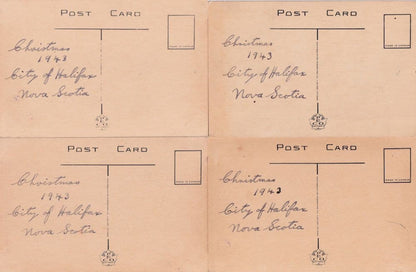 POST CARD
Christmas
1943
City of Halifax
Nova Scotia
POST CARD
Christmas
1943
City of Halifax
Nova Scotia
POST CARD
Christmas
1943
City of Halifax
Nova Scotia
POST CARD
Christmas
1943
City of Halifax
Nova Scotia